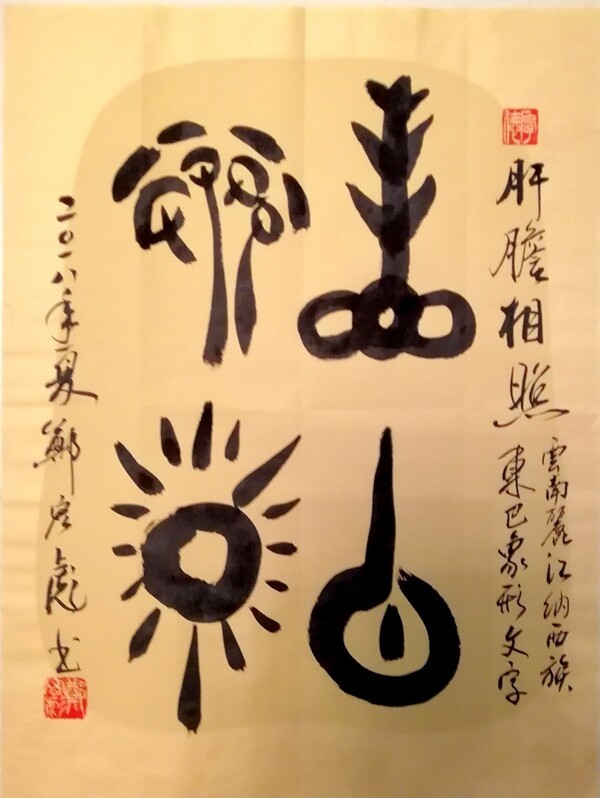 肝膽相照
雲南麗江納西族
東巴象形文字
二〇一八年夏鄭宏彪书